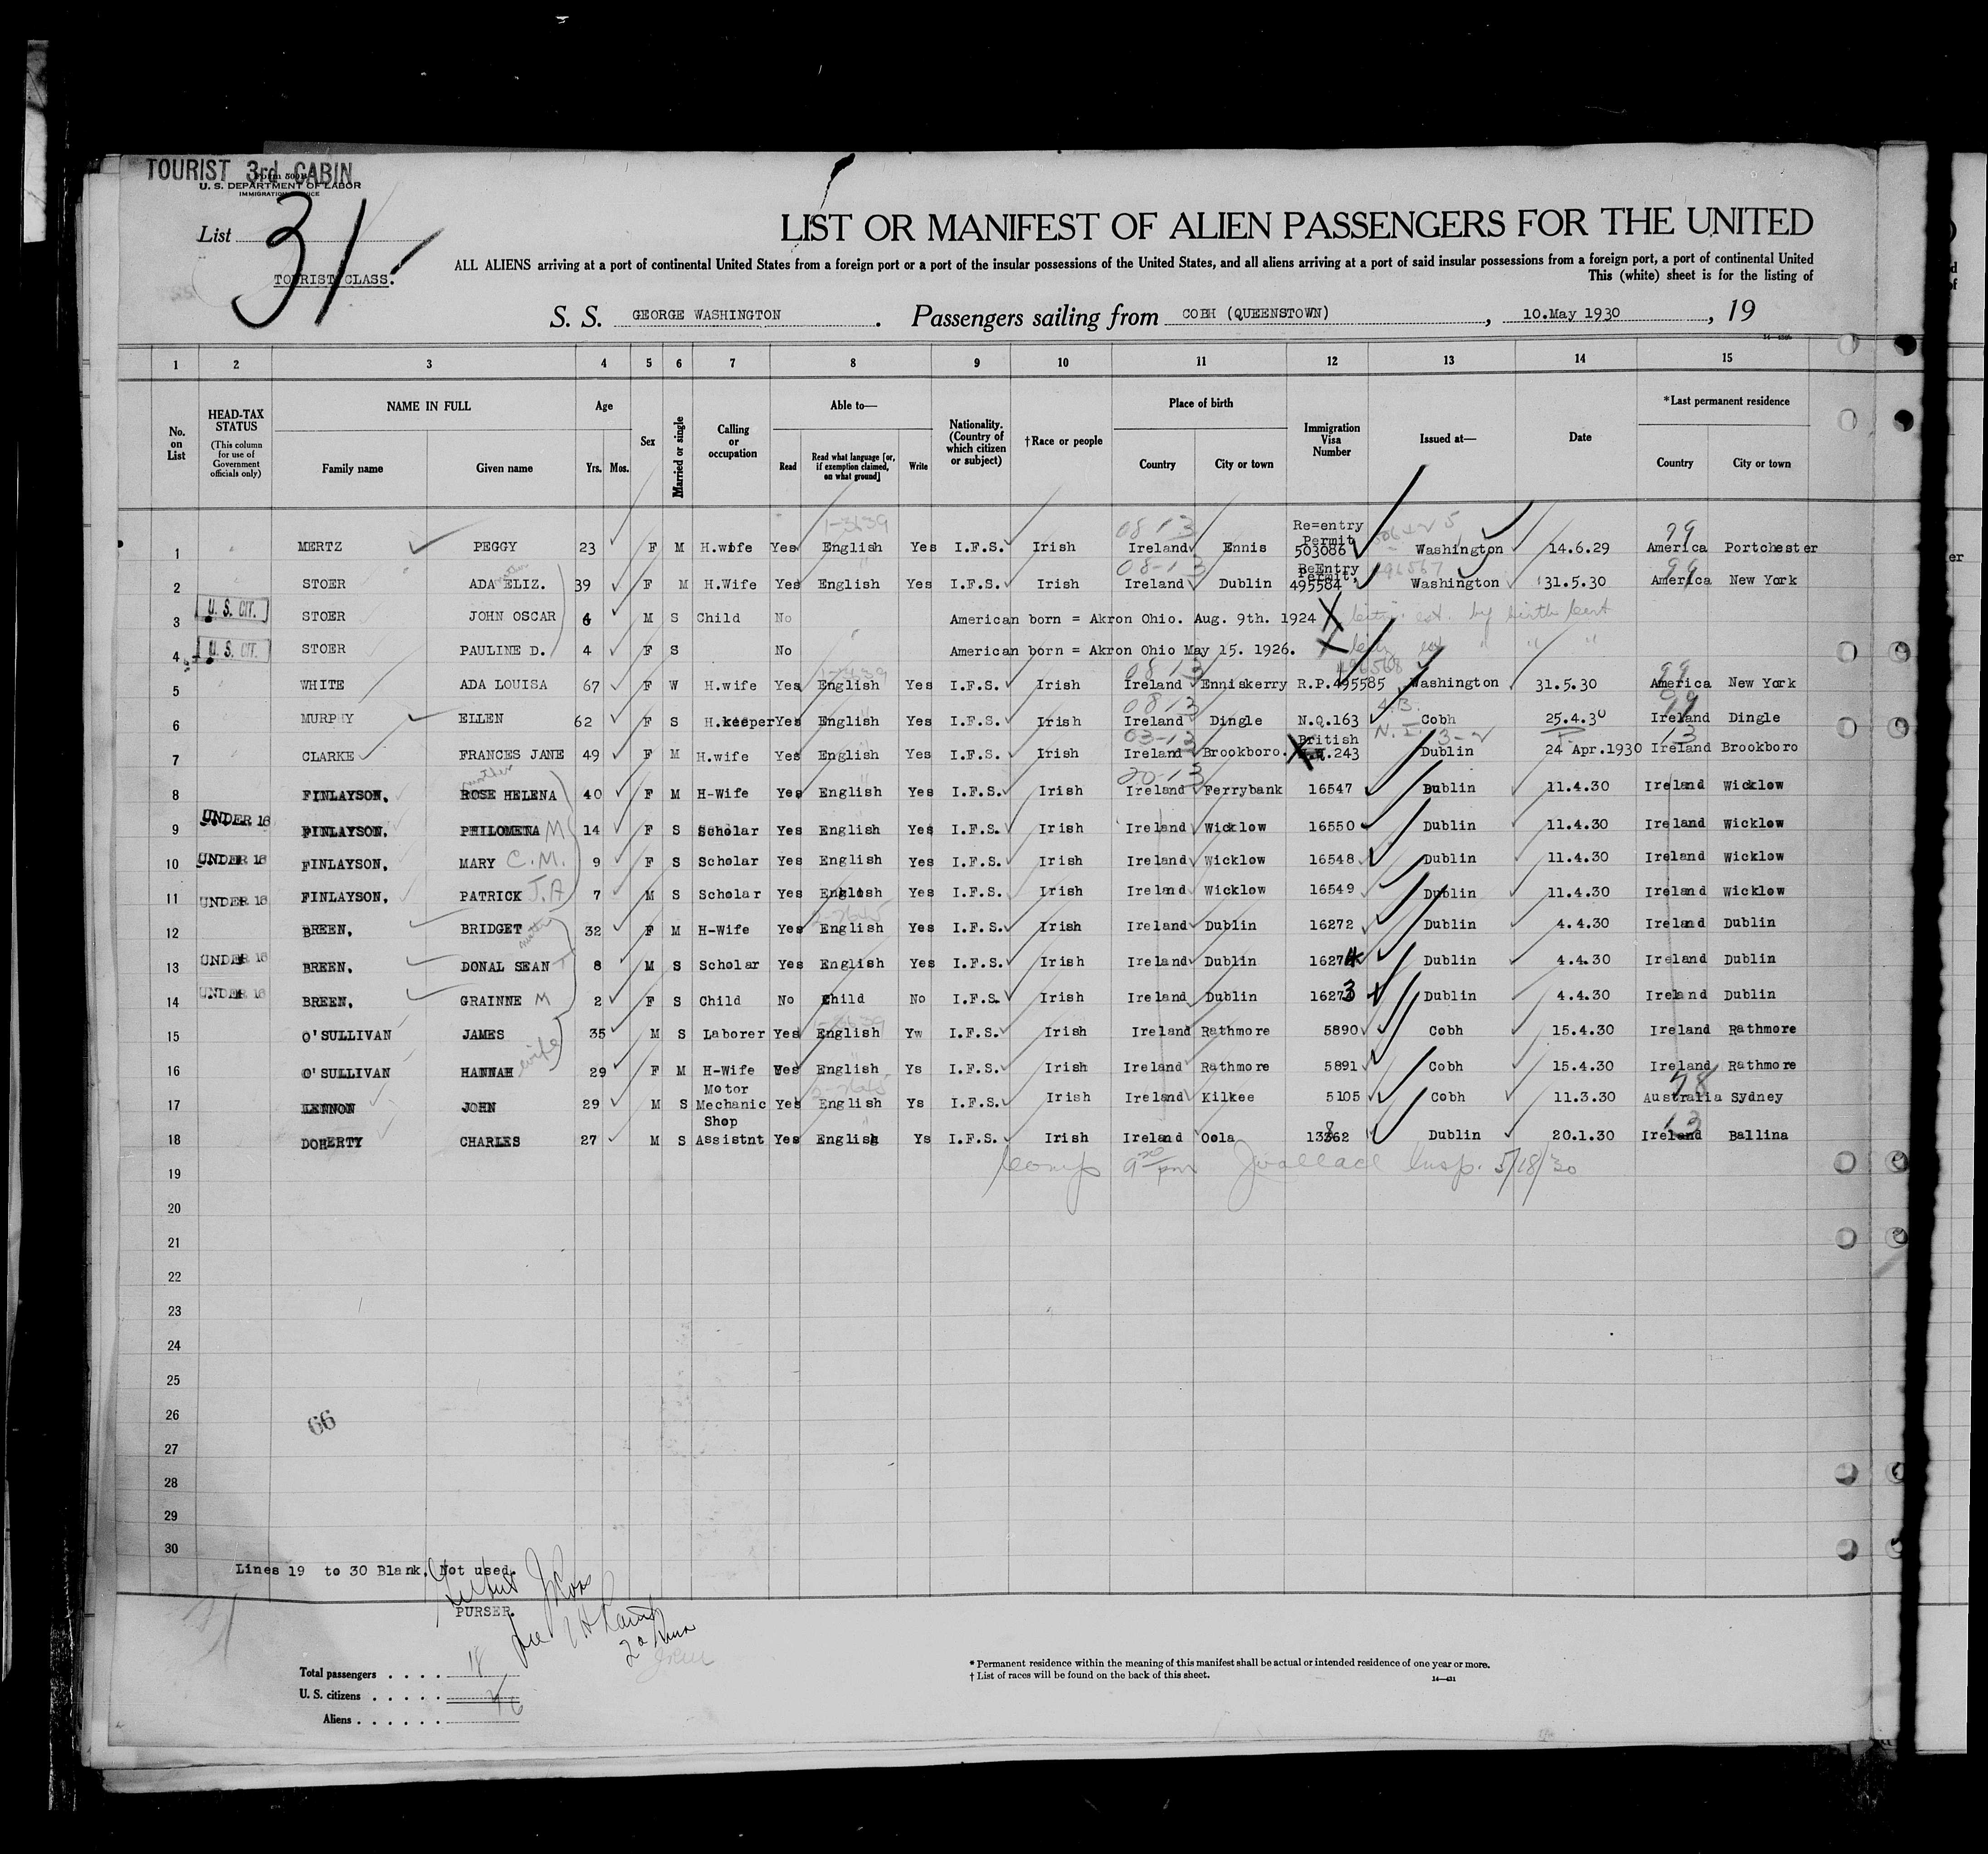 TOURIST 3rd CABIN
U. S. DEPARTMENT OF LABOR
List 31
TOURIST CLASS.
LIST OR MANIFEST OF ALIEN PASSENGERS FOR THE UNITED
ALL ALIENS arriving at a port of continental United States from a foreign port or a port of the insular possessions of the United States, and all aliens arriving at a port of said insular possessions from a foreign port, a port of continental United
This (white) sheet is for the listing of
S. S. GEORGE WASHINGTON. Passengers sailing from COBH (QUEENSTOWN), 10.May 1930, 19
1 2 3 4 5 6 7 8 9 10 11 12 13 14 15
No. on List
HEAD-TAX STATUS (This column for use of Government officials only)
NAME IN FULL Family name Given name
Age Yrs. Mos.
Sex
Married or single
Calling or occupation
Able to— Read Read what language [or, if exemption claimed, on what ground] Write
Nationality. (Country of which citizen or subject)
†Race or people
Place of birth Country City or town
Immigration Visa Number
Issued at—
Date
*Last permanent residence Country City or town
1 MERTZ PEGGY 23 F M H.wife Yes English Yes I.F.S. Irish Ireland Ennis Re=entry Permit 503086 Washington 14.6.29 America Portchester
2 STOER ADA ELIZ. 39 F M H.Wife Yes English Yes I.F.S. Irish Ireland Dublin ReEntry Permit. 495584 Washington 31.5.30 America New York
3 U. S. CIT. STOER JOHN OSCAR 6 M S Child No American born = Akron Ohio. Aug. 9th. 1924
4 U. S. CIT. STOER PAULINE D. 4 F S No American born = Akron Ohio May 15. 1926.
5 WHITE ADA LOUISA 67 F W H.wife Yes English Yes I.F.S. Irish Ireland Enniskerry R.P.495585 Washington 31.5.30 America New York
6 MURPHY ELLEN 62 F S H.keeper Yes English Yes I.F.S. Irish Ireland Dingle N.Q.163 Cobh 25.4.30 Ireland Dingle
7 CLARKE FRANCES JANE 49 F M H.wife Yes English Yes I.F.S. Irish Ireland Brookboro. British 243 Dublin 24 Apr.1930 Ireland Brookboro
8 FINLAYSON, ROSE HELENA 40 F M H-Wife Yes English Yes I.F.S. Irish Ireland Ferrybank 16547 Dublin 11.4.30 Ireland Wicklow
9 UNDER 16 FINLAYSON. PHILOMENA M 14 F S Scholar Yes English Yes I.F.S. Irish Ireland Wicklow 16550 Dublin 11.4.30 Ireland Wicklow
10 UNDER 16 FINLAYSON, MARY C.M. 9 F S Scholar Yes English Yes I.F.S. Irish Ireland Wicklow 16548 Dublin 11.4.30 Ireland Wicklow
11 UNDER 16 FINLAYSON, PATRICK J.A 7 M S Scholar Yes English Yes I.F.S. Irish Ireland Wicklow 16549 Dublin 11.4.30 Ireland Wicklow
12 BREEN, BRIDGET 32 F M H-Wife Yes English Yes I.F.S. Irish Ireland Dublin 16272 Dublin 4.4.30 Ireland Dublin
13 UNDER 16 BREEN, DONAL SEAN 8 M S Scholar Yes English Yes I.F.S. Irish Ireland Dublin 16274 Dublin 4.4.30 Ireland Dublin
14 UNDER 16 BREEN, GRAINNE M 2 F S Child No Child No I.F.S. Irish Ireland Dublin 16273 Dublin 4.4.30 Ireland Dublin
15 O'SULLIVAN JAMES 35 M S Laborer Yes English Yw I.F.S. Irish Ireland Rathmore 5890 Cobh 15.4.30 Ireland Rathmore
16 O'SULLIVAN HANNAH wife 29 F M H-Wife Yes English Ys I.F.S. Irish Ireland Rathmore 5891 Cobh 15.4.30 Ireland Rathmore
17 LENNON JOHN 29 M S Motor Mechanic Yes English Ys I.F.S. Irish Ireland Kilkee 5105 Cobh 11.3.30 Australia Sydney
18 DOHERTY CHARLES 27 M S Shop Assistnt Yes English Ys I.F.S. Irish Ireland Oola 13862 Dublin 20.1.30 Ireland Ballina
Insp. 5/18/30
19
20
21
22
23
24
25
26
66
27
28
29
30
Lines 19 to 30 Blank. Not used.
PURSER.
Total passengers . . . . 18
U. S. citizens . . . . .
Aliens . . . . . .
* Permanent residence within the meaning of this manifest shall be actual or intended residence of one year or more.
† List of races will be found on the back of this sheet.
14—431